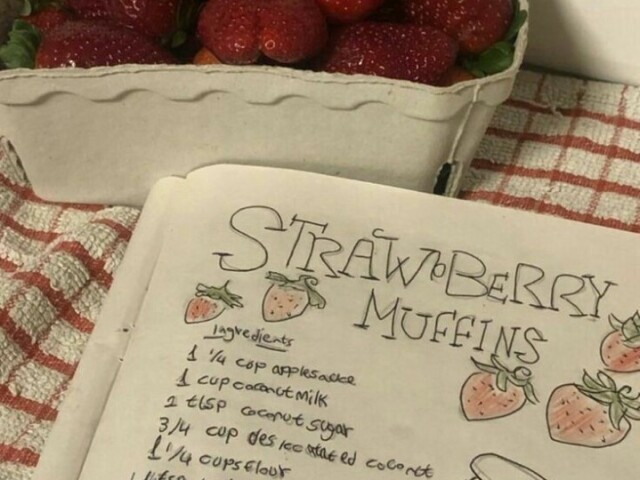 STRAWBERRY
MUFFINS
Ingredients
1 1/4 cup applesauce
1 cup coconut milk
2 tbsp coconut sugar
3/4 cup desiccated coconut
1 1/4 cups flour